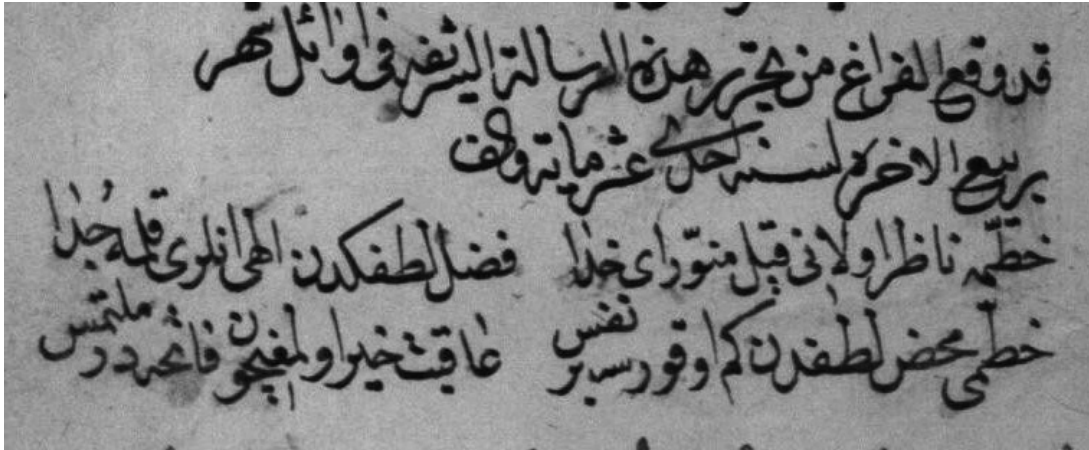 قد وقع الفراغ من تحرير هذه الرسالة الشريفه فى اوائل شهر
ربيع الاخره لسنه احدى عشر مايه والف
خطمه ناظر اولانى قيل منور اى خدا فضل لطفكدن الهى انلرى قلمه جدا
خطمى محض لطفدن كم اوقورسه بر نفس عاقبت خير اولمغيچون فاتحه در ملتمس